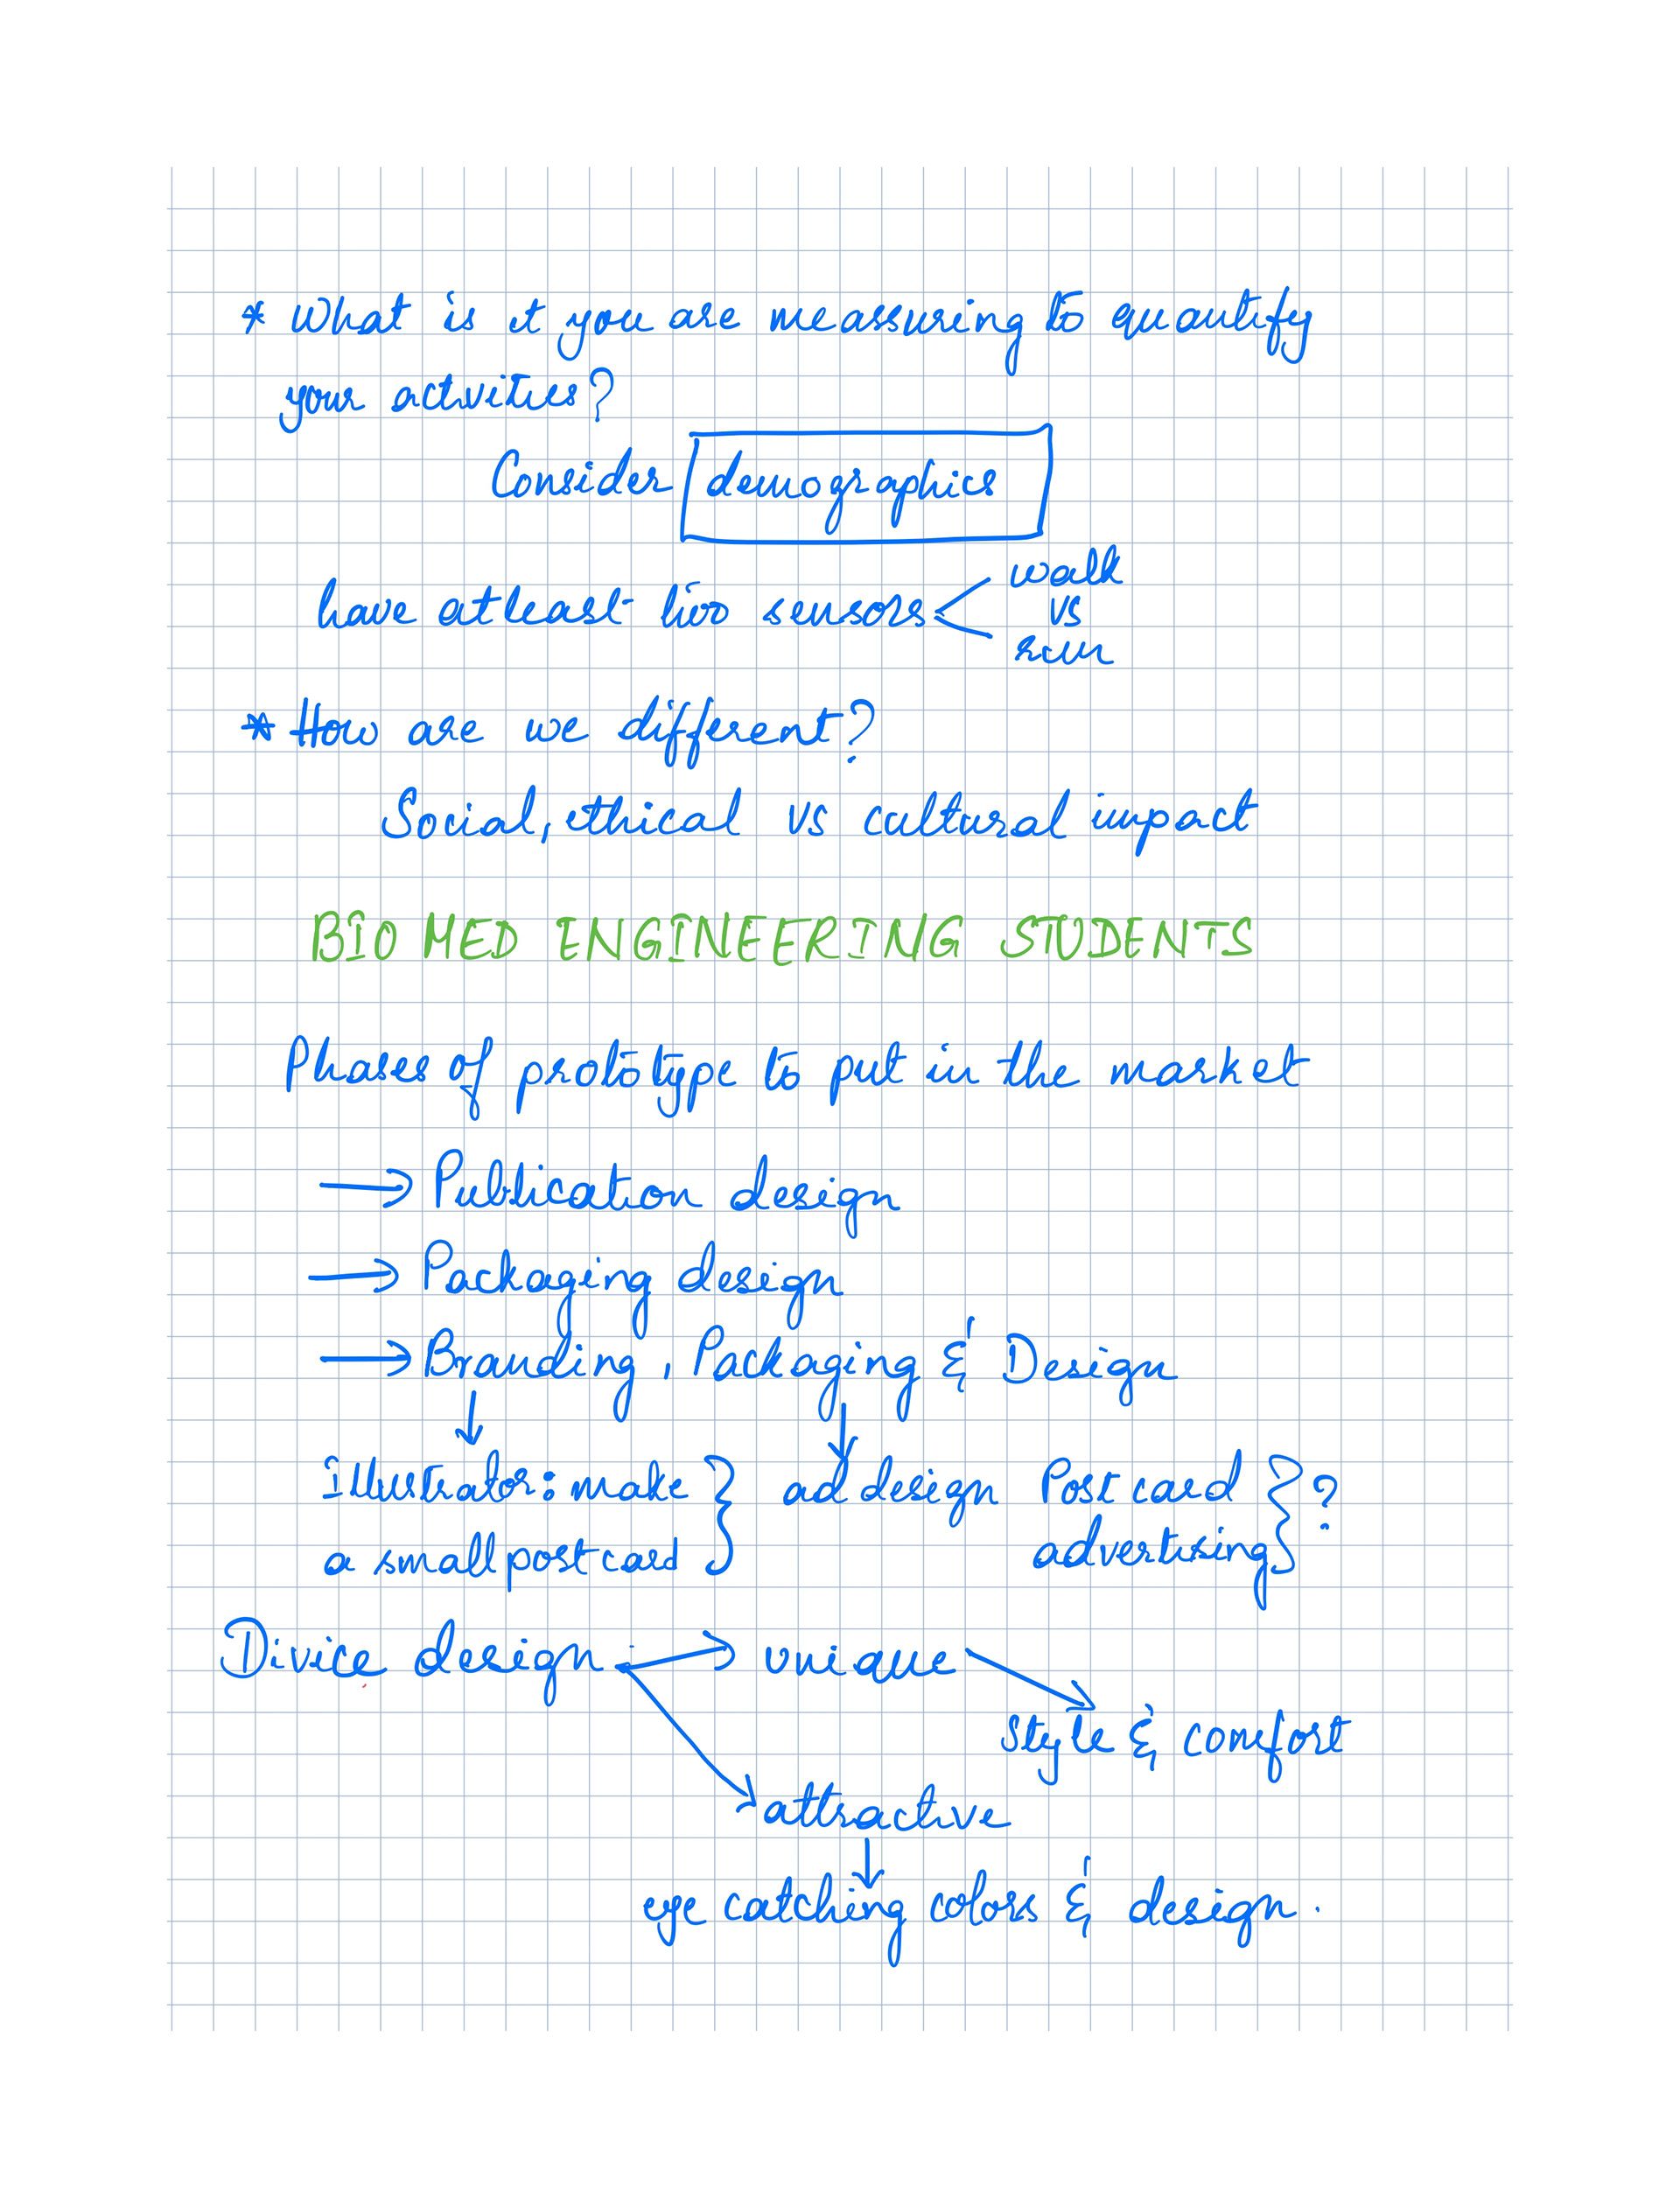 * What is it you are meassuring to quantify
your activities?
Consider demographics
have atleast two sensors
walk
vs
run
* How are we different?
Social, ethical vs cultural impact
BIO MED ENGINEERING STUDENTS
Phases of prototype to put in the market
→ Publication design
→ Packaging design
→ Branding, Packaging & Design
Illustrator: make } ad design Post card } ?
a small post card advertising
Divice design → unique
Style & comfort
attractive
eye catching colors & design.